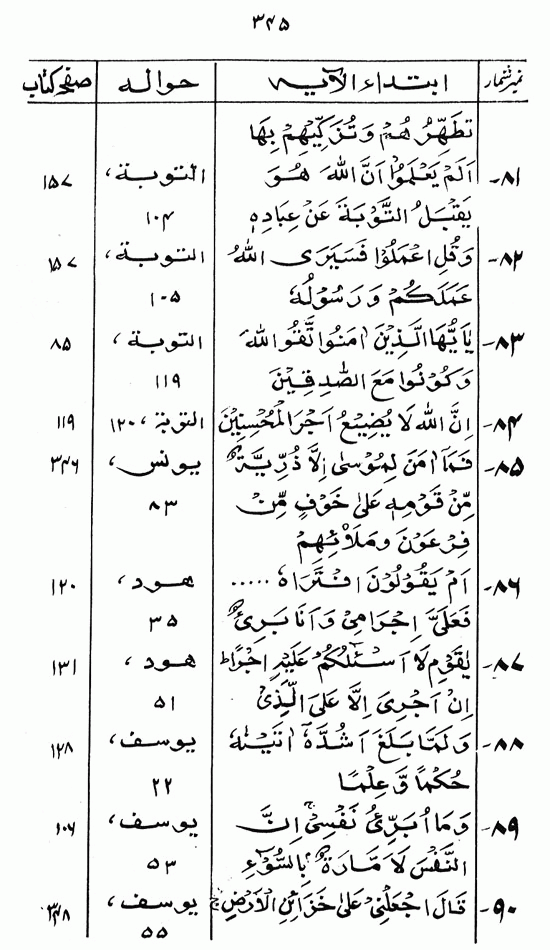 ۳۴۵
نمبر شمار ابتداء الآیہ حوالہ صفحہ کتاب
تُطَهِّرُهُمْ وَتُزَكِّيْهِمْ بِهَا
۸۱- اَلَمْ يَعْلَمُوْا اَنَّ اللّٰهَ هُوَ التوبة، ۱۵۷
يَقْبَلُ التَّوْبَةَ عَنْ عِبَادِهٖ ۱۰۴
۸۲- وَقُلِ اعْمَلُوْا فَسَيَرَى اللّٰهُ التوبة، ۱۵۷
عَمَلَكُمْ وَرَسُوْلُهٗ ۱۰۵
۸۳- يٰاَيُّهَا الَّذِيْنَ اٰمَنُوا اتَّقُوا اللّٰهَ التوبة، ۸۵
وَكُوْنُوْا مَعَ الصّٰدِقِيْنَ ۱۱۹
۸۴- اِنَّ اللّٰهَ لَا يُضِيْعُ اَجْرَ الْمُحْسِنِيْنَ التوبة، ۱۲۰ ۱۱۹
۸۵- فَمَا اٰمَنَ لِمُوْسٰى اِلَّا ذُرِّيَّةٌ يونس، ۳۴۶
مِّنْ قَوْمِهٖ عَلٰى خَوْفٍ مِّنْ ۸۳
فِرْعَوْنَ وَمَلَا۟ئِهِمْ
۸۶- اَمْ يَقُوْلُوْنَ افْتَرَاهُ ..... هود، ۱۲۰
فَعَلَيَّ اِجْرَامِيْ وَاَنَا بَرِيْءٌ ۳۵
۸۷- يٰقَوْمِ لَا اَسْئَلُكُمْ عَلَيْهِ اَجْرًا ط هود، ۱۳۱
اِنْ اَجْرِيَ اِلَّا عَلَى الَّذِيْ ۵۱
۸۸- وَلَمَّا بَلَغَ اَشُدَّهٗ اٰتَيْنٰهُ يوسف، ۱۲۸
حُكْمًا وَّعِلْمًا ۲۲
۸۹- وَمَا اُبَرِّئُ نَفْسِيْ ج اِنَّ يوسف، ۱۰۶
النَّفْسَ لَاَمَّارَةٌ بِالسُّوْٓءِ ۵۳
۹۰- قَالَ اجْعَلْنِيْ عَلٰى خَزَائِنِ الْاَرْضِ ج يوسف،
۵۵